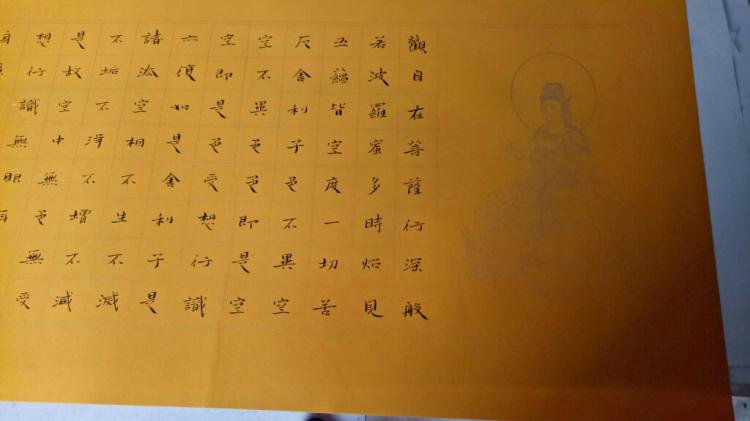 觀自在菩薩行深般
若波羅蜜多時炤見
五蘊皆空度一切苦
厄舍利子色不異空
空不異色色即是空
空即是色受想行識
亦復如是舍利子是
諸法空相不生不滅
不垢不淨不增不減
是故空中無色無受
想行識無眼耳
身